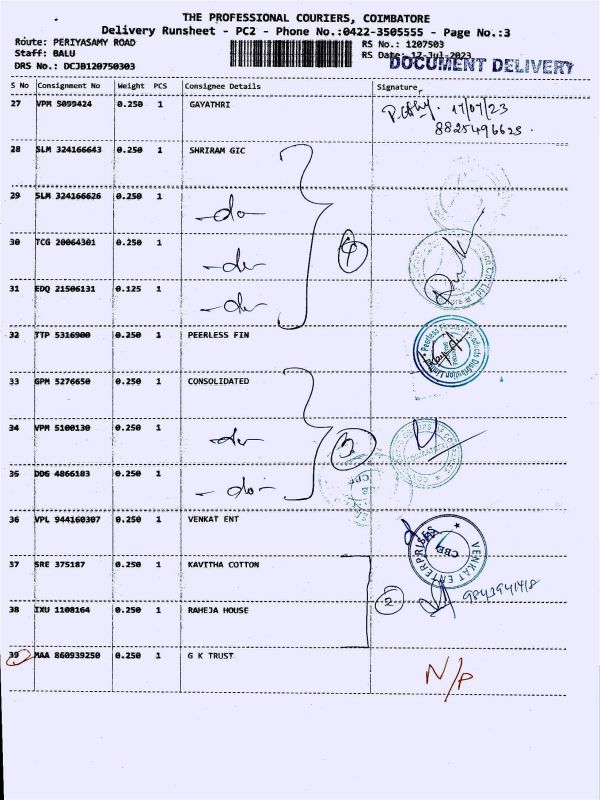 THE PROFESSIONAL COURIERS, COIMBATORE
Delivery Runsheet - PC2 - Phone No.:0422-3505555 - Page No.:3
Route: PERIYASAMY ROAD
RS No.: 1207503
Staff: BALU
RS Date: 17-Jul-2023
DRS No.: DCJB120750303
DOCUMENT DELIVERY
S No Consignment No Weight PCS Consignee Details Signature
27 VPM 5099424 0.250 1 GAYATHRI
17/07/23
8825496625.
28 SLM 324166643 0.250 1 SHRIRAM GIC
29 SLM 324166626 0.250 1 -do-
30 TCG 20064301 0.250 1 -do- 4
31 EDQ 21506131 0.125 1 -do-
32 TTP 5316900 0.250 1 PEERLESS FIN
33 GPM 5276650 0.250 1 CONSOLIDATED
34 VPM 5100130 0.250 1 -do- 3
35 DDG 4866183 0.250 1 -do-
36 VPL 944160307 0.250 1 VENKAT ENT
VENKAT ENTERPRISES
CBE
37 SRE 375187 0.250 1 KAVITHA COTTON
2
38 IXU 1108164 0.250 1 RAHEJA HOUSE
39 MAA 860939250 0.250 1 G K TRUST N/P